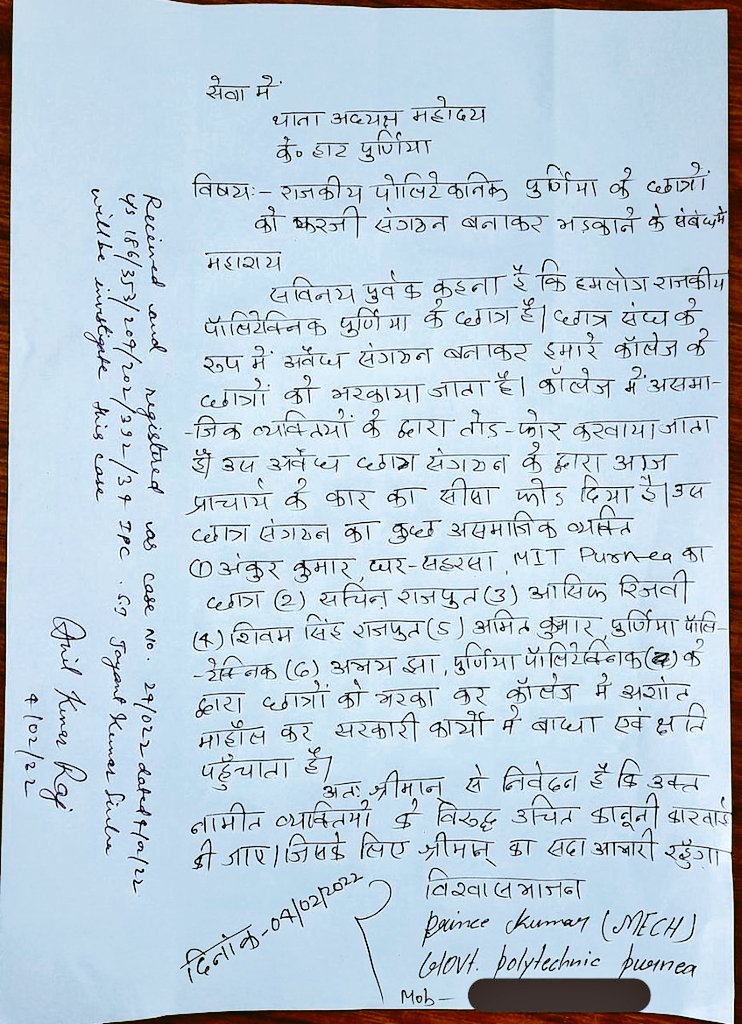 सेवा में
थाना अध्यक्ष महोदय
के० हाट पुर्णिया
विषय:- राजकीय पोलिटेकनिक पुर्णिया के छात्रों
को फरजी संगठन बनाकर भड़काने के संबंध में
महाशय
सविनय पुर्वक कहना है कि हमलोग राजकीय
पॉलिटेक्निक पुर्णिया के छात्र है। छात्र संघ के
रूप में अवैध संगठन बनाकर हमारे कॉलेज के
छात्रों को भरकाया जाता है। कॉलेज में असमा-
-जिक व्यक्तियों के द्वारा तोड-फोर करवाया जाता
है। उस अवैध छात्र संगठन के द्वारा आज
प्राचार्य के कार का सीसा फोड दिया है। उस
छात्र संगठन का कुछ असमाजिक व्यक्ति
(1) अंकुर कुमार, घर-सहरसा, MIT Purnea का
छात्र (2) सचिन राजपुत (3) आसिफ रिजवी
(4) शिवम सिंह राजपुत (5) अमित कुमार, पुर्णिया पॉलि-
-टेक्निक (6) अभय झा, पुर्णिया पॉलिटेक्निक के
द्वारा छात्रों को भरका कर कॉलेज मे अशांत
माहौल कर सरकारी कार्यो मे बाधा एवं क्षति
पहुँचाता है।
अतः श्रीमान् से निवेदन है कि उक्त
नामीत व्यक्तियों के विरुद्ध उचित कानूनी कारवाई
की जाए। जिसके लिए श्रीमान् का सदा आभारी रहुँगा
विश्वासभाजन
Prince Kumar (MECH)
Govt. polytechnic purnea
Mob-
दिनांक-04/02/2022
Received and registered vas case No. 29/022 dated 4/02/22
u/s 186/353/209/202/392/34 IPC. S.I Jayant Kumar Sinha
will be investigate this case
Anil Kumar Raj
4/02/22